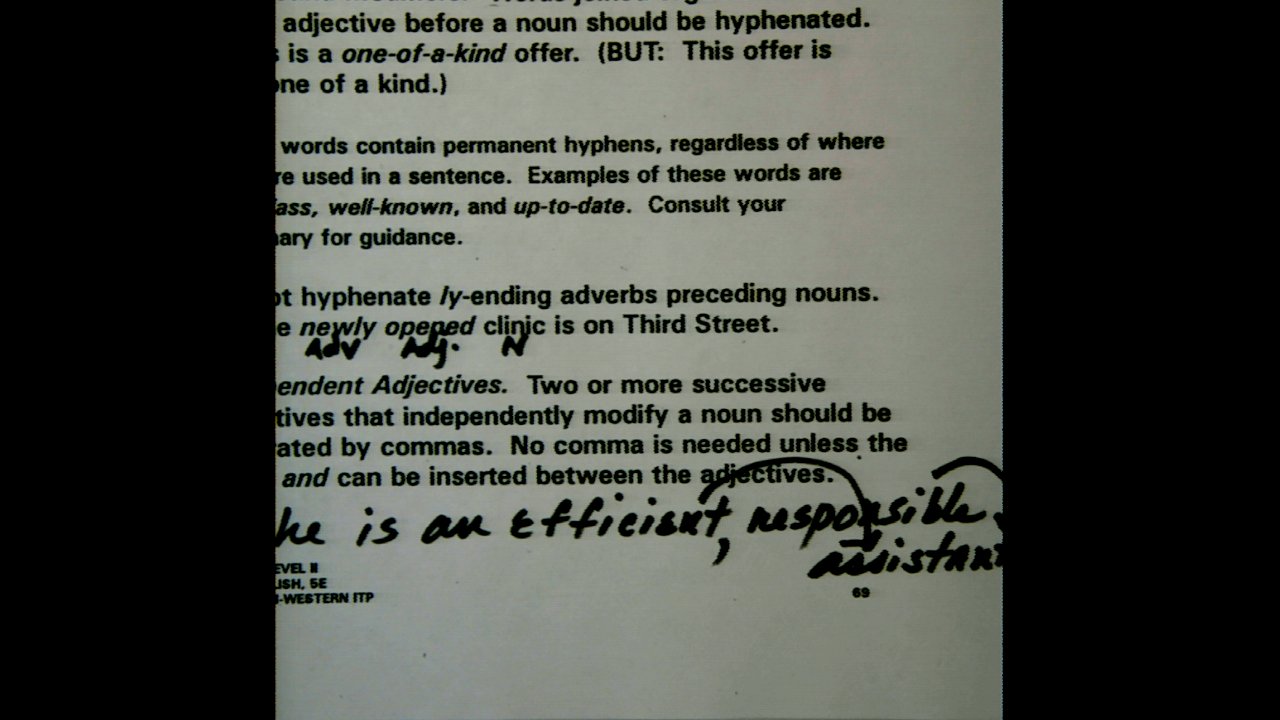 adjective before a noun should be hyphenated.
is a one-of-a-kind offer. (BUT: This offer is
ne of a kind.)
words contain permanent hyphens, regardless of where
re used in a sentence. Examples of these words are
ass, well-known, and up-to-date. Consult your
ary for guidance.
ot hyphenate ly-ending adverbs preceding nouns.
e newly opened clinic is on Third Street.
Adv Adj. N
endent Adjectives. Two or more successive
tives that independently modify a noun should be
ated by commas. No comma is needed unless the
and can be inserted between the adjectives.
he is an efficient, responsible
assistan
EVEL II
ISH, 5E
-WESTERN ITP
69